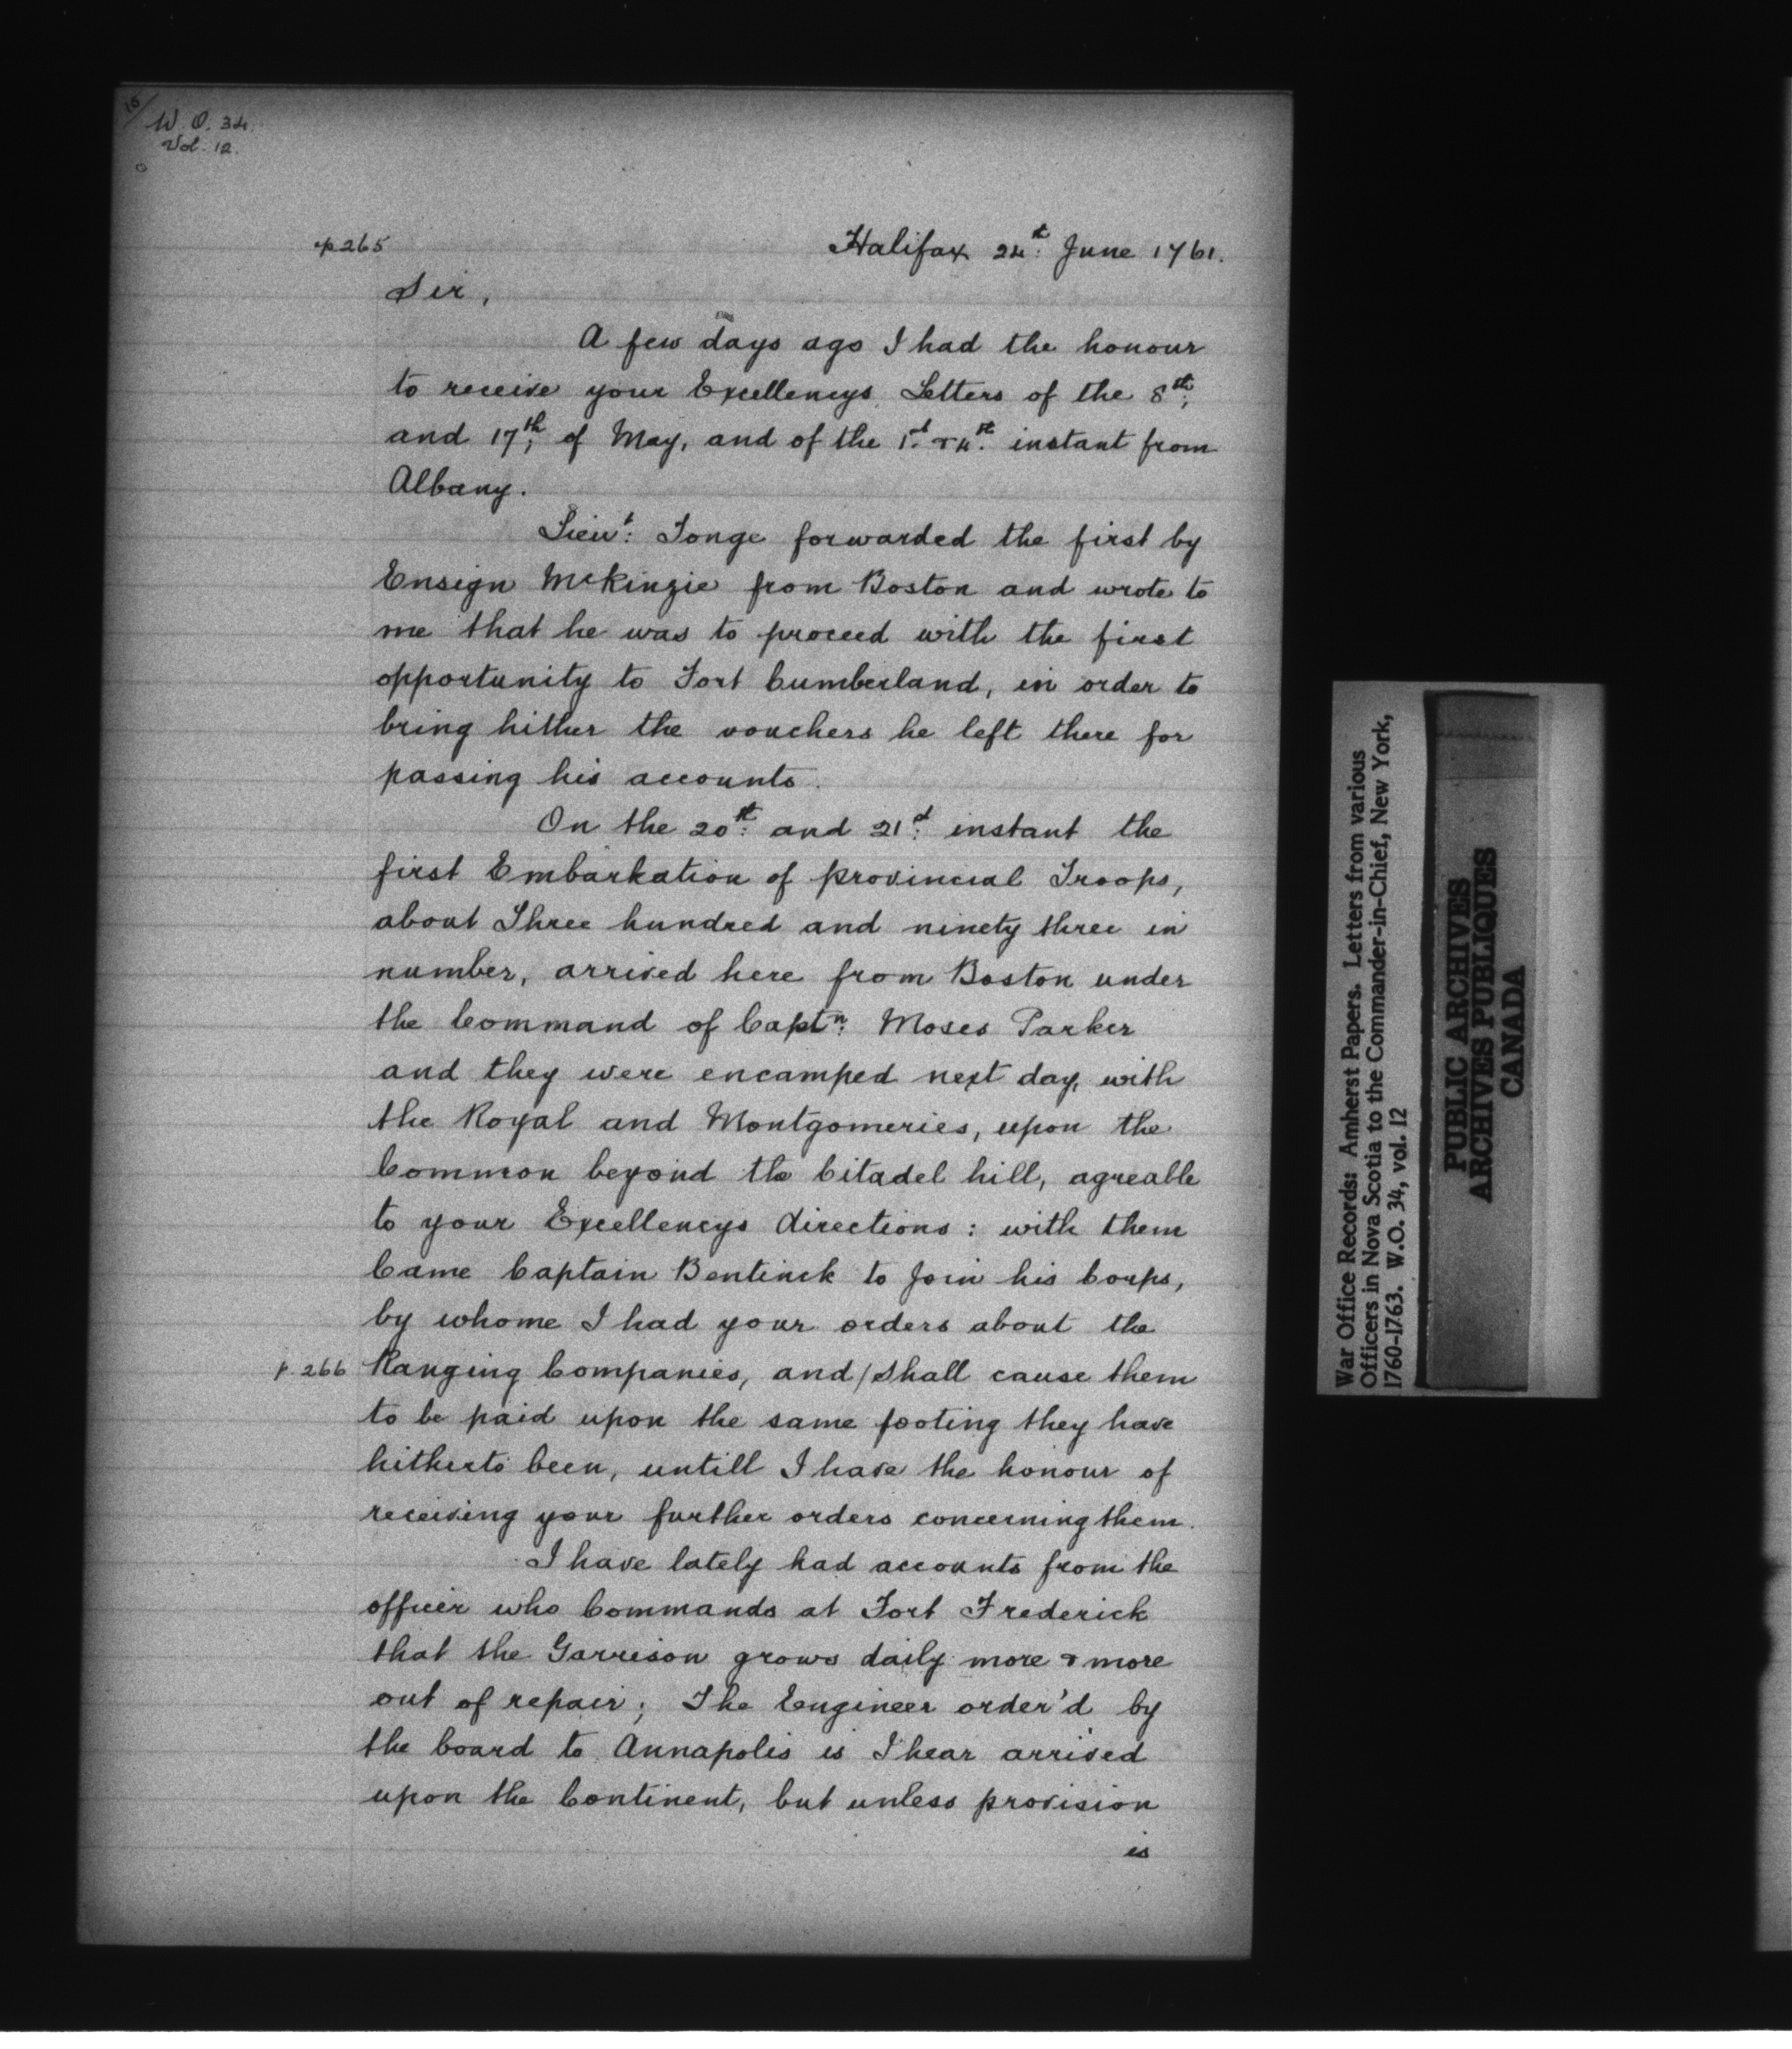 W. O. 34.
Vol. 12.
p 265
Halifax 24th: June 1761.
Sir,
A few days ago I had the honour
to receive your Excellencys Letters of the 8th;
and 17th; of May, and of the 1st & 4th: instant from
Albany.
Lieut: Tonge forwarded the first by
Ensign McKinzie from Boston and wrote to
me that he was to proceed with the first
opportunity to Fort Cumberland, in order to
bring hither the vouchers he left there for
passing his accounts.
On the 20th: and 21st: instant the
first Embarkation of provincial Troops,
about Three hundred and ninety three in
number, arrived here from Boston under
the Command of Captn: Moses Parker
and they were encamped next day, with
the Royal and Montgomeries, upon the
Common beyond the Citadel hill, agreable
to your Excellencys directions: with them
Came Captain Bentinck to Join his Corps,
by whome I had your orders about the
p. 266 Ranging Companies, and / shall cause them
to be paid upon the same footing they have
hitherto been, untill I have the honour of
receiving your further orders concerning them.
I have lately had accounts from the
officer who Commands at Fort Frederick
that the Garrison grows daily more & more
out of repair; The Engineer order'd by
the board to Annapolis is I hear arrived
upon the Continent, but unless provision
is
War Office Records: Amherst Papers. Letters from various
Officers in Nova Scotia to the Commander-in-Chief, New York,
1760-1763. W.O. 34, vol. 12
PUBLIC ARCHIVES
ARCHIVES PUBLIQUES
CANADA